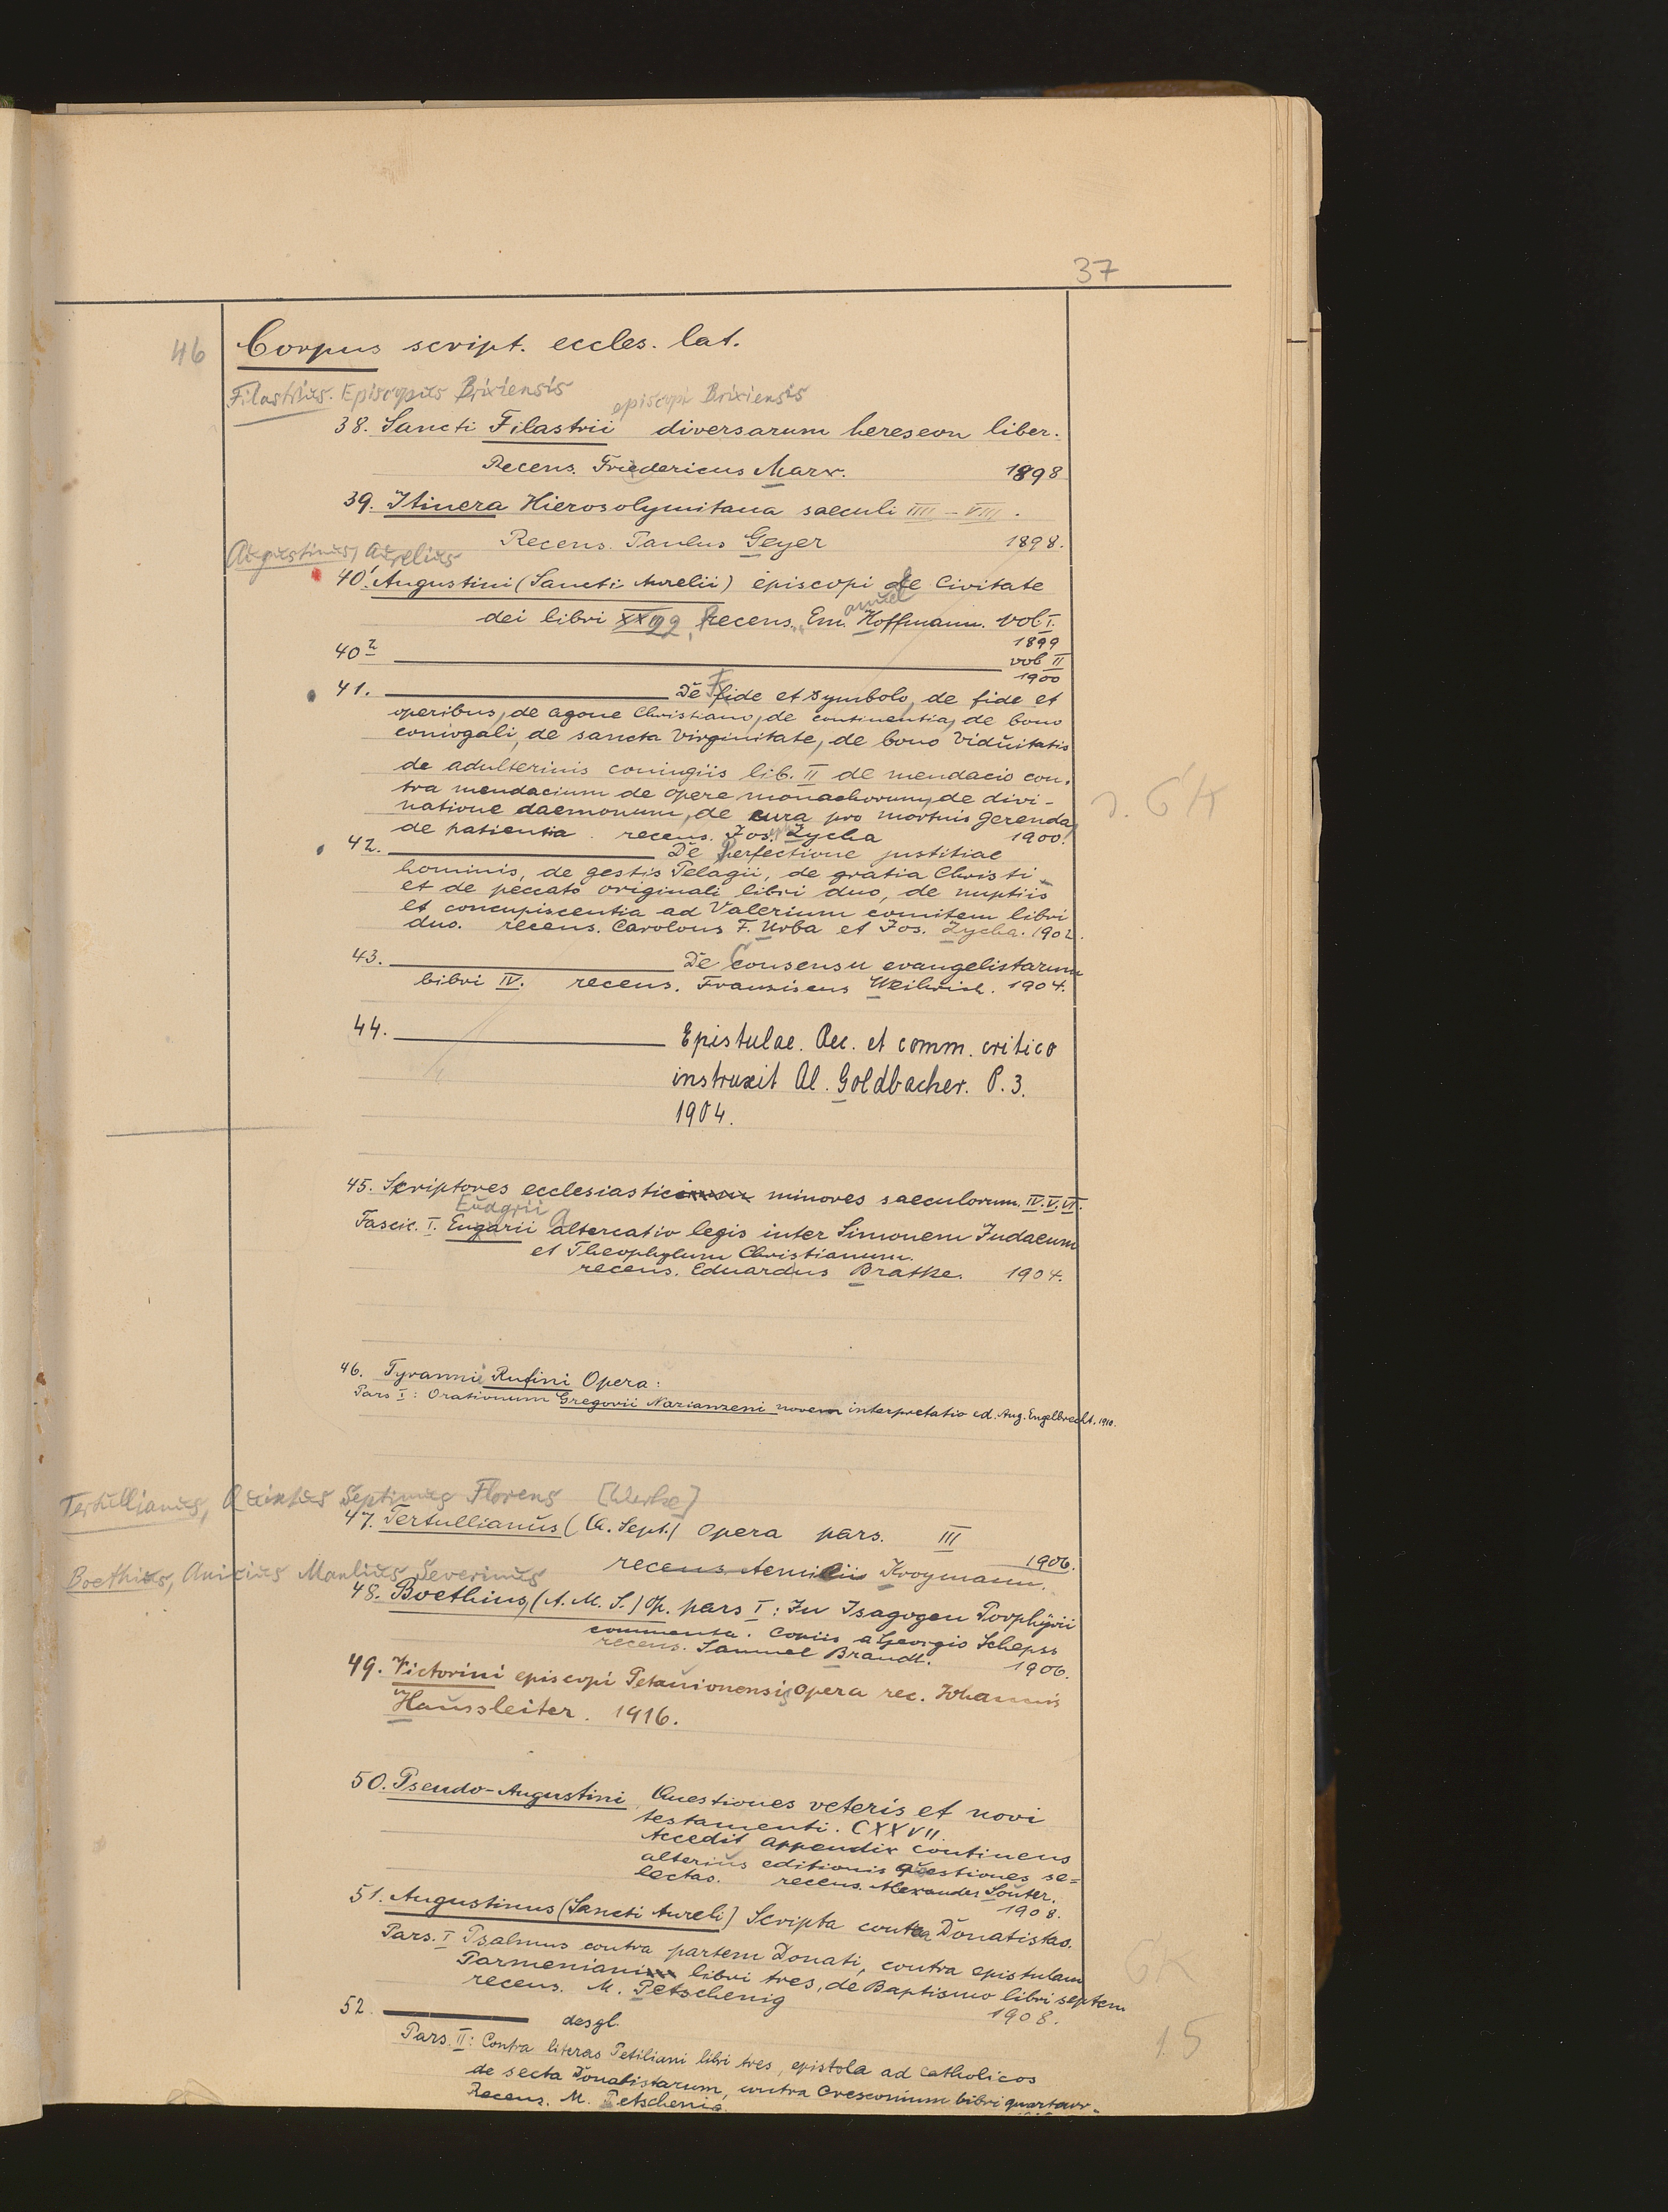 37
46
Corpus script. eccles. lat.
Filastrius. Episcopus Brixiensis
episcopi Brixiensis
38. Sancti Filastrii diversarum hereseon liber.
Recens. Friedericus Marx. 1898
39. Itinera Hierosolymitana saeculi IIII – VIII.
Recens. Paulus Geyer 1898.
Augustinus, Aurelius
40¹ Augustini (Sancti Aurelii) episcopi de Civitate
anuel
dei libri XXII 22, Recens. Em. Hoffmann. vol I.
1899
40² vol II
1900
41. De Fide et symbolo, de fide et
operibus, de agone Christiano, de continentia, de bono
coniogali, de sancta Virginitate, de bono Viduitatis
de adulterinis coningiis lib. II de mendacio con-
tra mendacium de opere monachorum, de divi-
natione daemonum, de cura pro mortuis gerenda,
de patientia. recens. Jos. Zycha 1900.
42. De Perfectione justitiae
hominis, de gestis Pelagii, de gratia Christi
et de peccato originali libri duo, de nuptiis
et concupiscentia ad Valerium comitem libri
duo. recens. Carolous F. Urba et Jos. Zycha. 1902.
43. De Consensu evangelistarum
libri IV. recens. Franziscus Weihrich. 1904.
44. Epistulae. Rec. et comm. critico
instruxit Al. Goldbacher. P. 3.
1904.
45. Scriptores ecclesiastici minores saeculorum IV. V. VI.
Euagrii
Fascic. I. Eugarii Altercatio legis inter Simonem Judaeum
et Theophylum Christianum.
recens. Eduardus Bratke. 1904.
46. Tyrannii Rufini Opera:
Pars I: Orationum Gregorii Nazianzeni novem interpretatio ed. Aug. Engelbrecht. 1910.
Tertullianus, Quintus Septimus Florens [Werke]
47. Tertullianus (Q. Sept.) Opera pars. III
1906.
recens. Aemilii Kroymann.
Boethius, Anicius Manlius Severinus
48. Boethius, (A. M. S.) Op. pars I: In Isagogen Porphyrii
commenta. Copiis a Georgio Schepss
recens. Samuel Brandt. 1906.
49. Victorini episcopi Petavionensis Opera rec. Johannis
Haussleiter. 1916.
50. Pseudo-Augustini Questiones veteris et novi
testamenti. CXXVII.
Accedit appendix continens
alterius editionis questiones se=
lectas. recens. Alexander Souter.
1908.
51. Augustinus (Sancti Aureli) Scripta contra Donatistas.
Pars. I Psalmus contra partem Donati, contra epistulam
Parmeniani libri tres, de Baptismo libri septem
recens. M. Petschenig 1908.
52. desgl.
Pars. II: Contra literas Petiliani libri tres, epistola ad catholicos
de secta Donatistarum, contra Cresconium libri quartuor.
Recens. M. Petschenig.
15